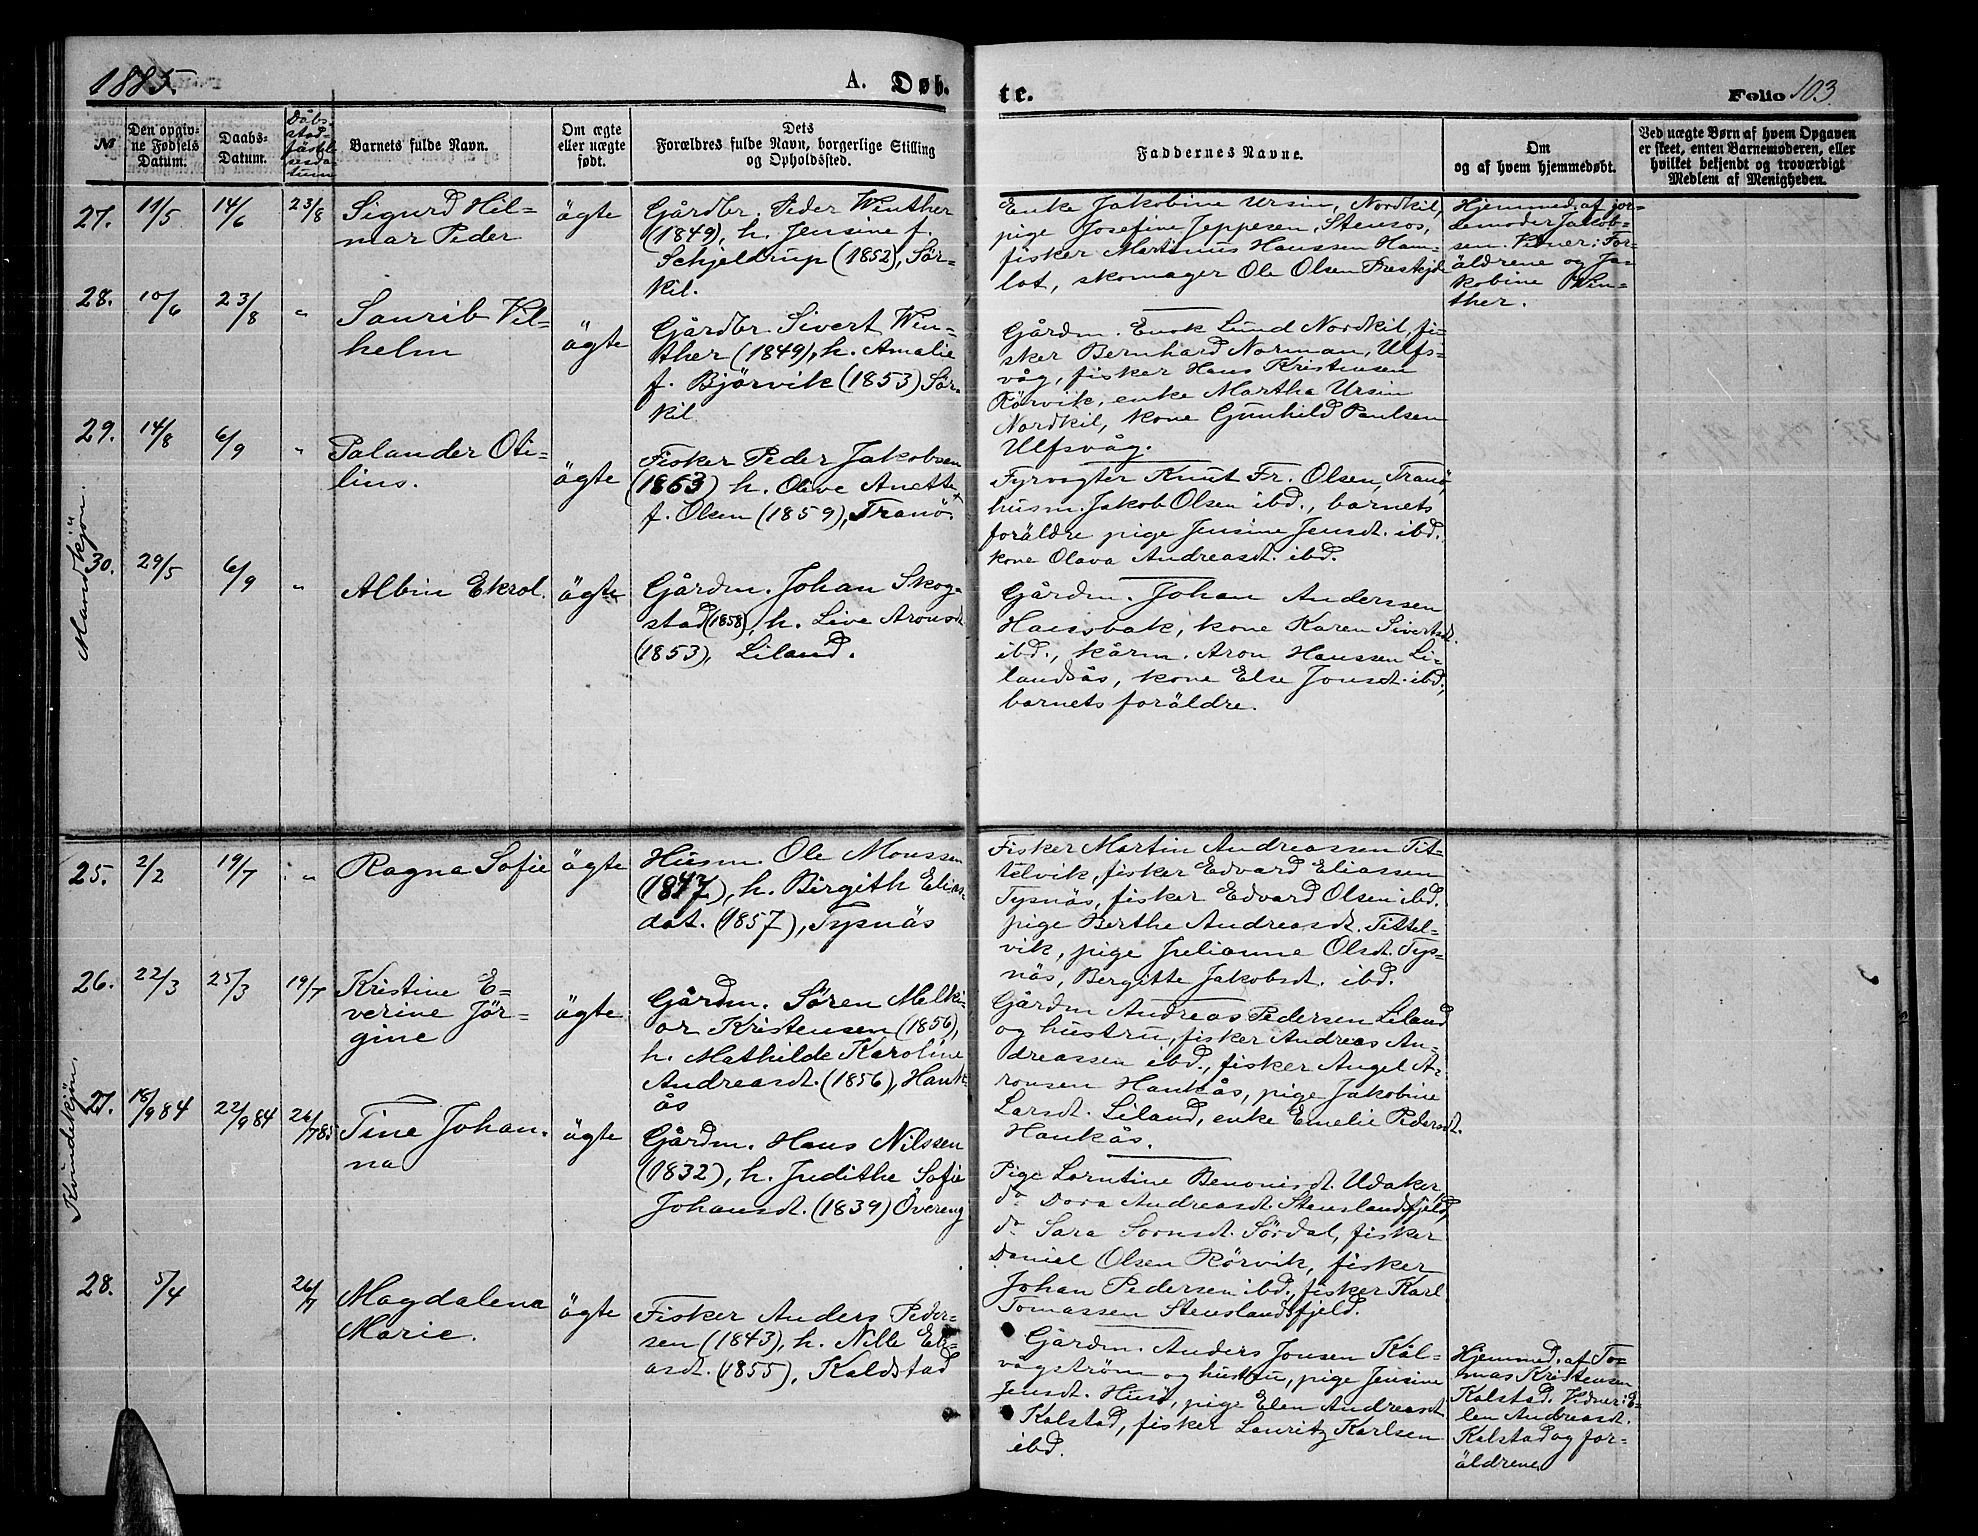 1885.
A. Døb-
te.
Folio 103
№
Den opgiv-
ne Fødsels
Datum.
Daabs-
Datum.
Dåbs-
stad-
fästel-
sesda-
tum
Barnets fulde Navn.
Om ægte
eller uægte
født.
Dets
Forældres fulde Navn, borgerlige Stilling
og Opholdssted.
Faddernes Navne.
Om
og af hvem hjemmedøbt.
Ved uægte Børn af hvem Opgaven
er skeet, enten Barnemoderen, eller
hvilket bekjendt og troværdigt
Medlem af Menigheden.
Mandkjön.
27.
11/5
14/6
23/8
Sigurd Hil-
mar Peder
ägte
Gårdbr. Peder Winther
(1849), h. Jensine f.
Schjeldrup (1852), Sör-
kil.
Enke Jakobine Ursin, Nordkil,
pige Josefine Jeppesen, Stensos,
fisker Martinus Hanssen Ham-
lot, skomager Ole Olsen
Hjemmed. af jor-
demoder Jakob-
sen. Vidner: For-
äldrene og Ja-
kobine Win-
ther.
28.
10/6
23/8
"
Saurib Vil-
helm
ägte
Gårdbr. Sivert Win-
ther (1849), h. Amalie
f. Björvik (1853) Sör-
kil
Gårdm. Enok Lund Nordkil, fi-
sker Bernhard Norman, Ulfs-
våg, fisker Hans Kristensen
Rörvik, enke Martha Ursin
Nordkil, kone Gunhild Paulsen
Ulfsvåg.
29.
14/8
6/9
"
Palander Oti-
lius.
ägte
Fisker Peder Jakobsen
(1863) h. Olive Anette
f. Olsen (1859), Tranö.
Fyrvogter Knut Fr. Olsen, Tranö,
husm. Jakob Olsen ibd., barnets
foräldre pige Jensine Jensdt. ibd.,
kone Olava Andreasdt. ibd.
30.
29/5
6/9
"
Albin Ekrol.
ägte
Gårdm. Johan Skog-
stad (1858), h. Live Aronsdt
(1853), Liland.
Gårdm. Johan Anderssen
Hausbak, kone Karen Sivertsdt.
ibd., kårm. Aron Hanssen Li-
landsås, kone Else Jonsdt. ibd.,
barnets foräldre.
Kvindekjön.
25.
2/2
19/7
"
Ragna Sofie
ägte
Husm. Ole Monssen
(1847), h. Birgith Elias-
dat. (1857), Tysnäs
Fisker Martin Andreassen Tit-
telvik, fisker Edvard Eliassen
Tysnäs, fisker Edvard Olsen ibd.
pige Berthe Andreasdt. Tittel-
vik, pige Julianne Olsdt. Tys-
näs, Bergitte Jakobsdt. ibd.
26.
22/3
25/3
19/7
Kristine E-
verine Jör-
gine
ägte
Gårdm. Sören Melki-
or Kristensen (1856),
h. Mathilde Karoline
Andreasdt. (1856), Hauk-
ås
Gårdm Andreas Pedersen Liland
og hustru, fisker Andreas An-
dreassen ibd., fisker Angel A-
ronsen Haukås, pige Jakobine
Larsdt. Liland, enke Emelie Pedersdt.
Haukås.
27.
18/9 84
22/9 84
26/7 85
Tine Johan-
na
ägte
Gårdm. Hans Nilssen
(1832), h. Judithe Sofie
Johansdt. (1839) Övereng
Pige Lorntine Benonisdt. Udaker,
do Dora Andreasdt. Stenslandsfjeld,
do Sara Sornsdt. Sördal, fisker
Daniel Olsen Rörvik, fisker
Johan Pedersen ibd., fisker Karl
Tomassen Stenslandsfjeld.
28.
5/4
26/7
Magdalena
Marie.
ägte
Fisker Anders Peder-
sen (1843), h. Nille Eli-
asdt. (1855), Kaldstad
Gårdm. Anders Jonsen Kål-
vågström og hustru, pige Jensine
Jensdt. Husö, pige Elen Andreasdt
Kalstad, fisker Lauritz Karlsen
ibd.
Hjemmed. af To-
mas Kristensen
Kalstad. Vidner: E-
len Andreasdt.
Kalstad og for-
äldrene